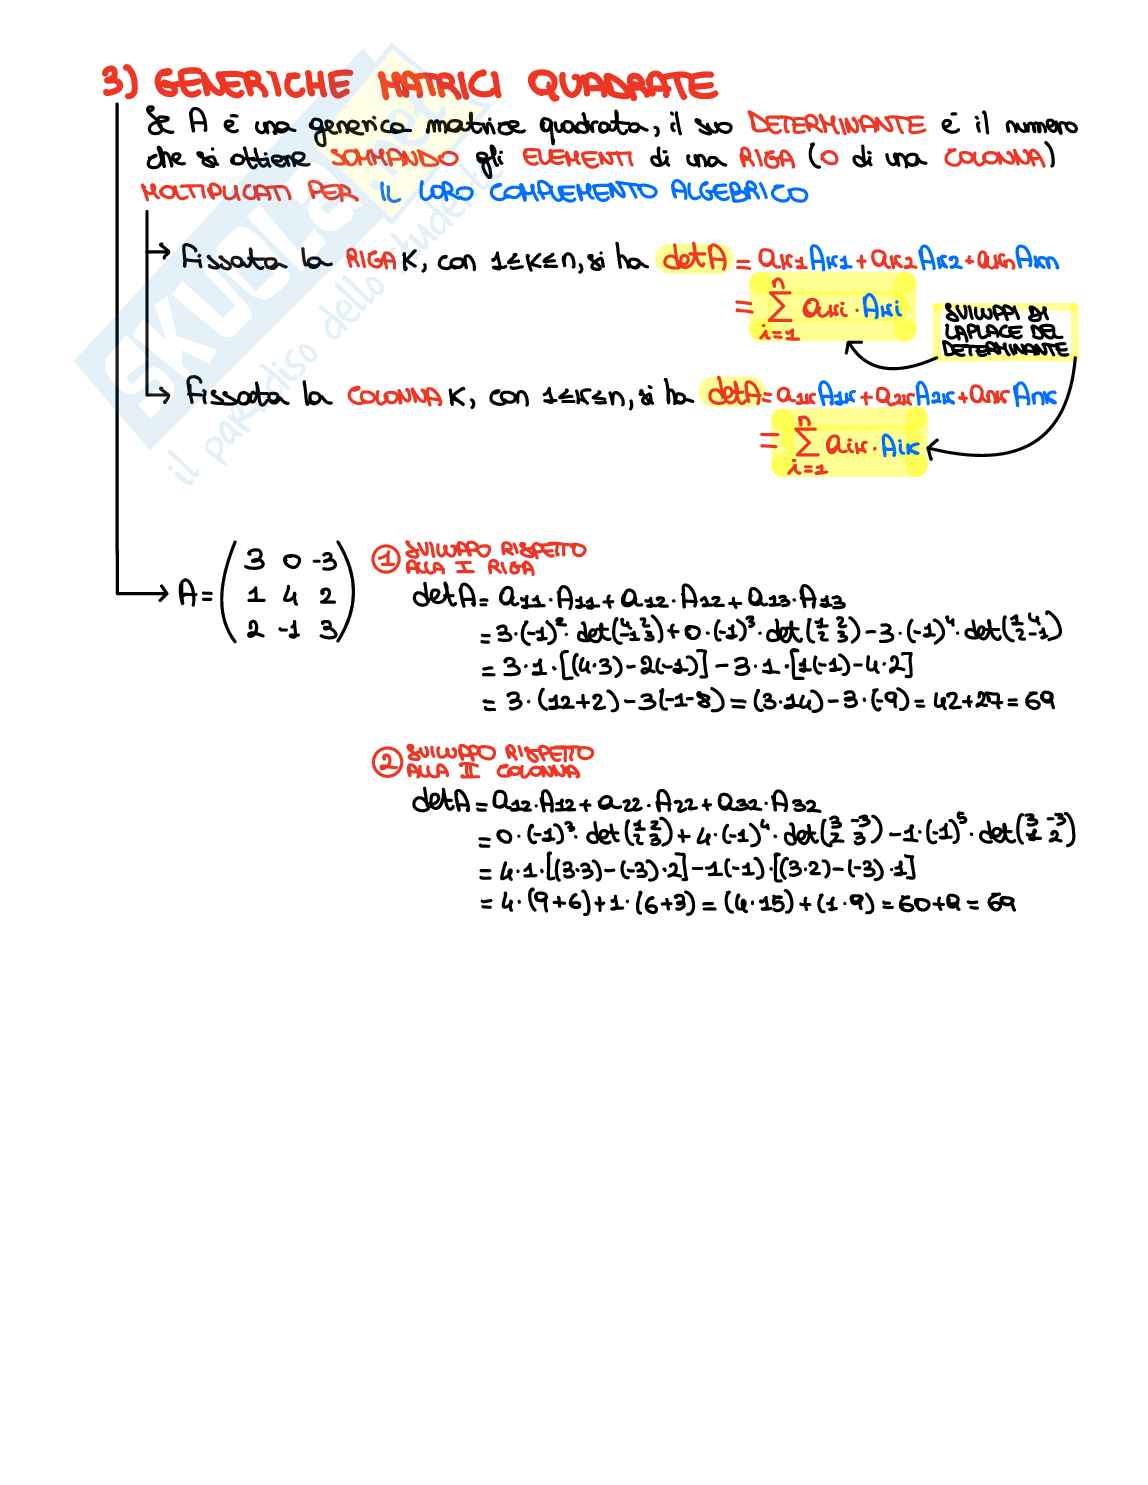 3) GENERICHE MATRICI QUADRATE
Se A è una generica matrice quadrata, il suo DETERMINANTE è il numero
che si ottiene SOMMANDO gli ELEMENTI di una RIGA (O di una COLONNA)
MOLTIPLICATI PER IL LORO COMPLEMENTO ALGEBRICO
Fissata la RIGA K, con 1≤K≤n, si ha detA = aK1 AK1 + aK2 AK2 + aKn AKn
= ∑ i=1 n aKi · AKi
SVILUPPI DI
LAPLACE DEL
DETERMINANTE
Fissata la COLONNA K, con 1≤K≤n, si ha detA = a1K A1K + a2K A2K + anK AnK
= ∑ i=1 n aiK · AiK
A = (3 0 -3
1 4 2
2 -1 3)
① SVILUPPO RISPETTO
ALLA I RIGA
detA = a11·A11 + a12·A12 + a13·A13
= 3·(-1)²·det(4 2 -1 3) + 0·(-1)³·det(1 2 2 3) - 3·(-1)⁴·det(1 4 2 -1)
= 3·1·[(4·3) - 2(-1)] - 3·1·[1(-1) - 4·2]
= 3·(12+2) - 3(-1-8) = (3·14) - 3·(-9) = 42+27 = 69
② SVILUPPO RISPETTO
ALLA II COLONNA
detA = a12·A12 + a22·A22 + a32·A32
= 0·(-1)³·det(1 2 2 3) + 4·(-1)⁴·det(3 -3 2 3) - 1·(-1)⁵·det(3 -3 1 2)
= 4·1·[(3·3) - (-3)·2] - 1(-1)·[(3·2) - (-3)·1]
= 4·(9+6) + 1·(6+3) = (4·15) + (1·9) = 60+9 = 69
SKUOLA.net
il paradiso dello studente